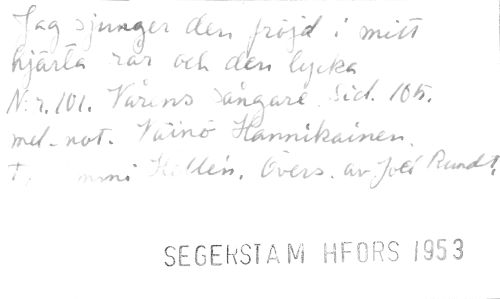 Jag sjunger den fröjd i mitt
hjärta rår och den lycka
Nr. 101. Vårens sångare. Sid. 105.
mel. not. Väinö Hannikainen.
Övers. av Joel Rundt.
SEGERSTAM HFORS 1953